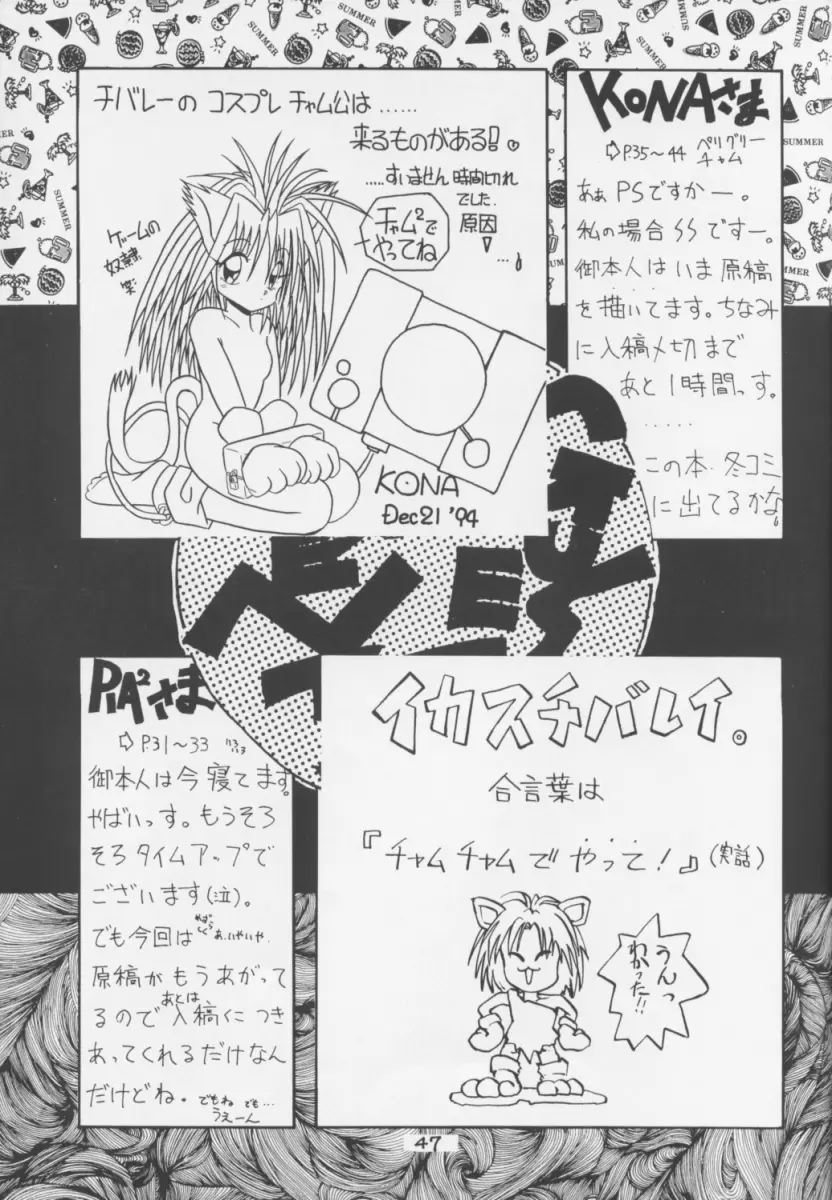 チバレーの コスプレ チャム公は ……
来るものがある!!
.....すいません 時間切れ
でした.
原因
チャム²で
やってね
ゲームの
奴隷
笑
KONA
Dec 21 '94
KONAさま
⇨P.35〜44 ペリグリー
チャム
あぁ PSですかー。
私の場合 SSですー。
御本人は いま 原稿
を描いてます。ちなみ
に入稿〆切まで
あと 1時間っす。
……
この本、冬コミ
に出てるかな。
PIA²さま
⇨ P.31〜33
御本人は今寝てます。
やばいっす。もうそろ
そろ タイムアップで
ございます(泣)。
でも今回は
あ.いやいや.
原稿が もうあがって
るので あとは 入稿に つき
あってくれるだけなん
だけどね. でもね でも…
うえーん
イカスチバレイ。
合言葉は
『チャムチャムで やって!』(実話)
うんっ
わかった!!
47
SUMMER